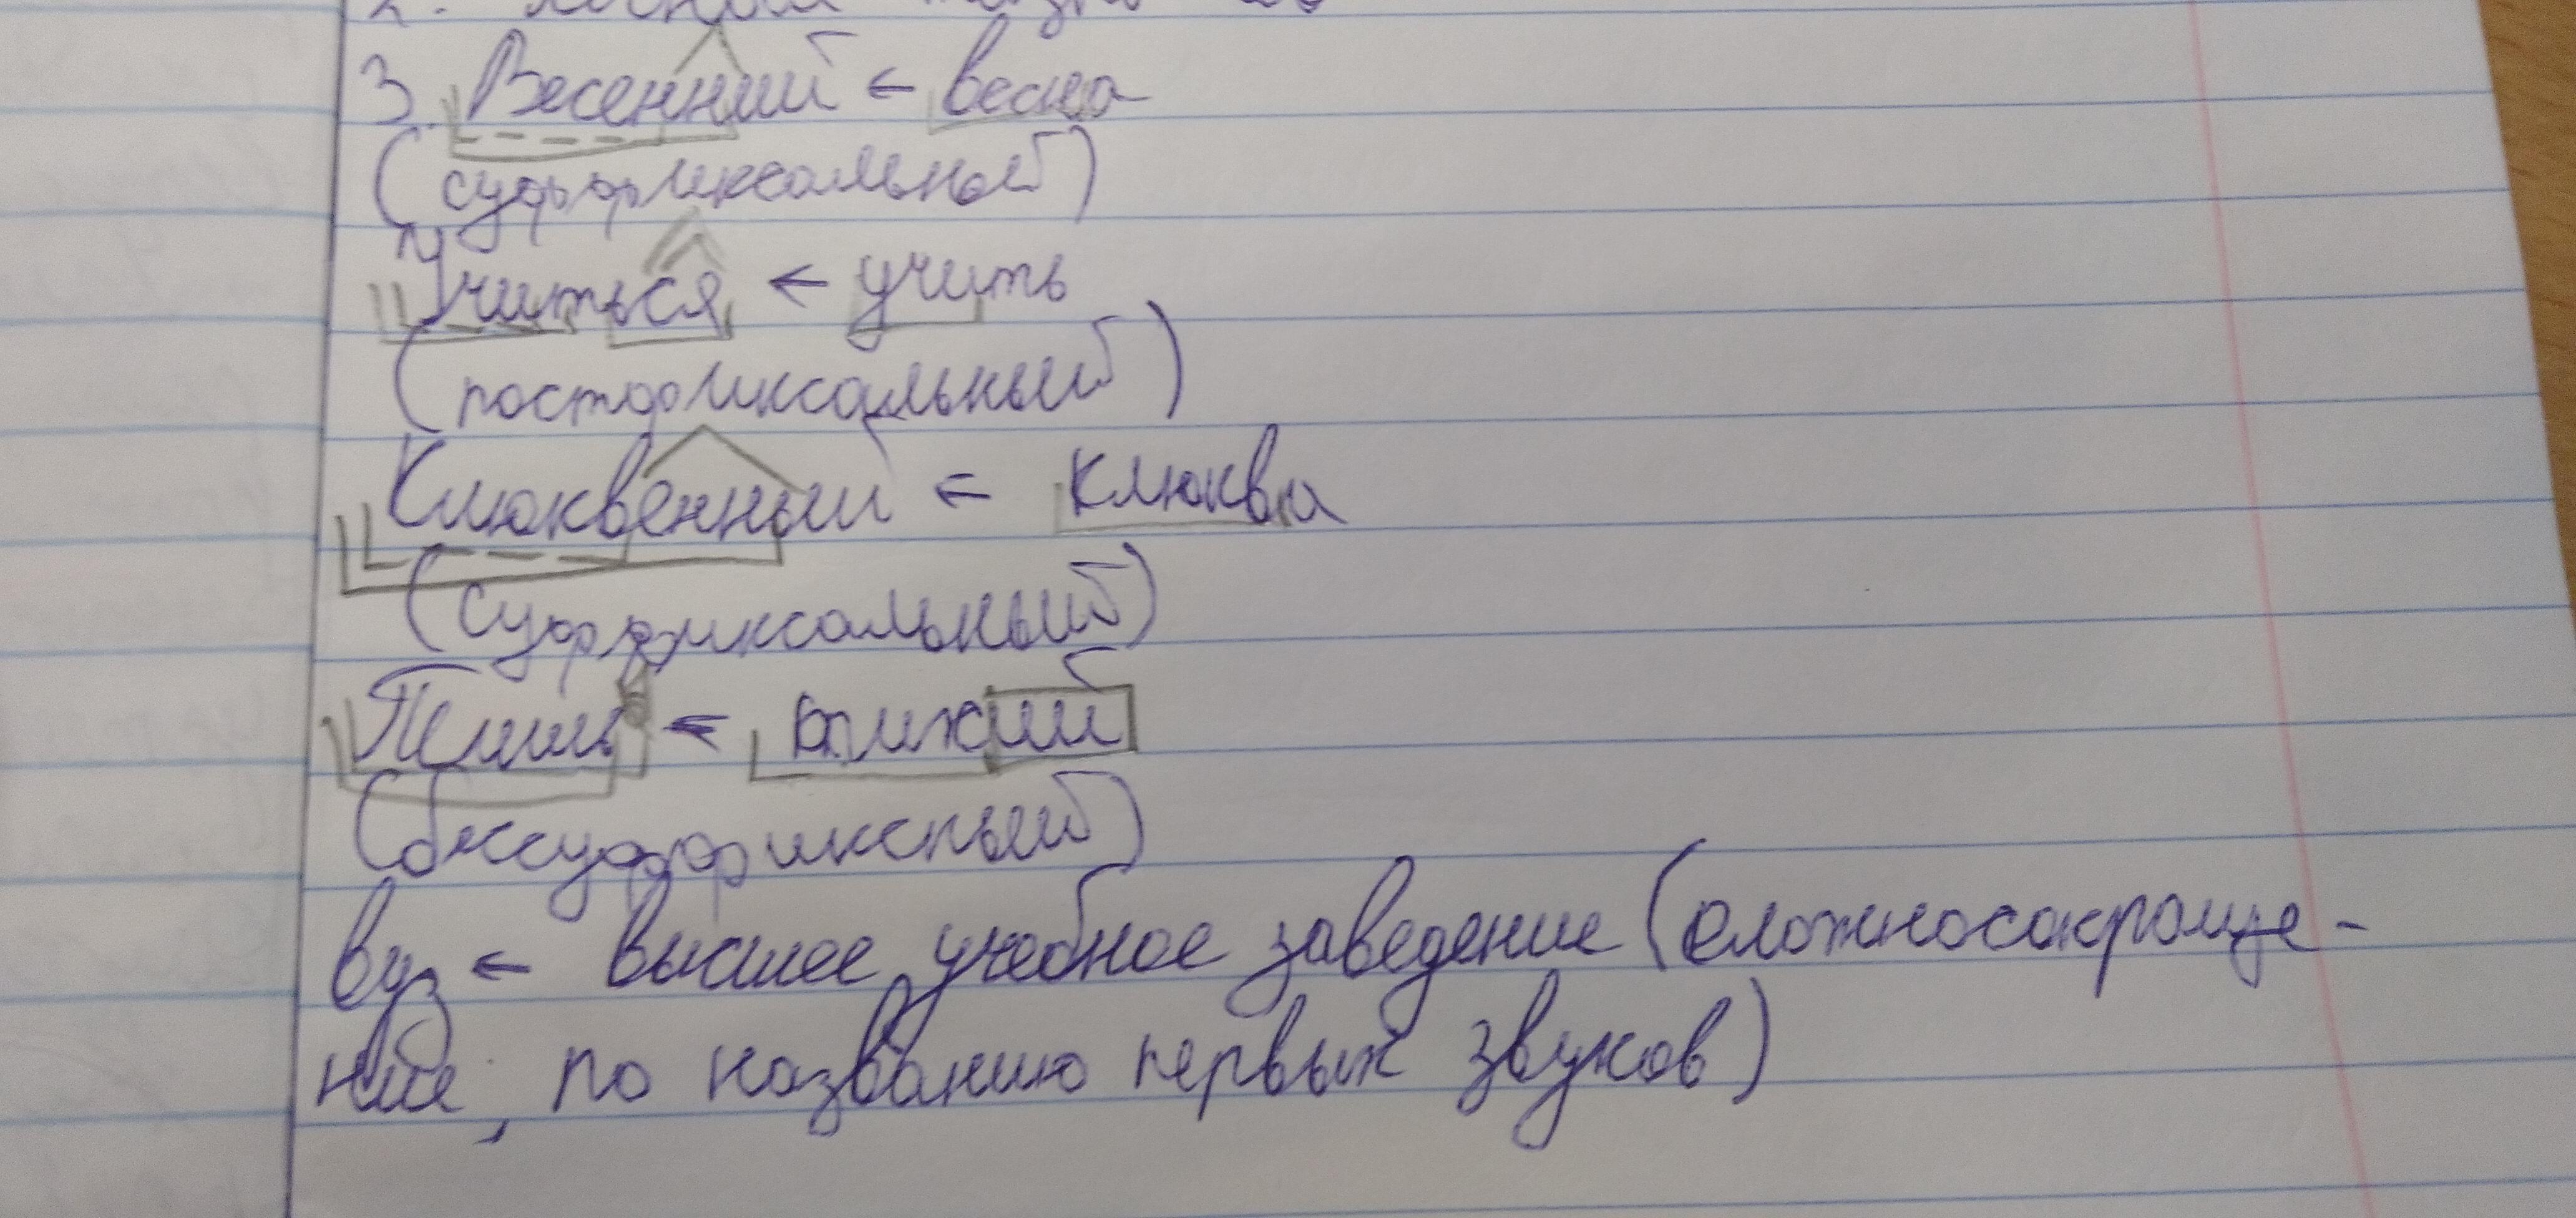 3. Весенний ← весна
(суффиксальный)
Учиться ← учить
(постфиксальный)
Клюквенный ← клюква
(суффиксальный)
←
(бессуффиксный)
вуз ← высшее учебное заведение (сложносокраще-
ние, по названию первых звуков)